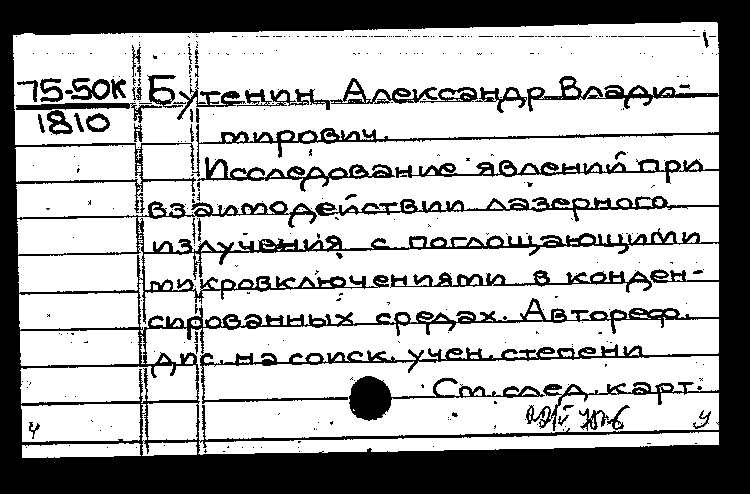 1
75-50К Бутенин, Александр Влади-
1810
мирович.
Исследование явлений при
взаимодействии лазерного
излучения с поглощающими
микровключениями в конден-
сированных средах. Автореф.
дис. на соиск. учен. степени
См. след. карт.
ч у